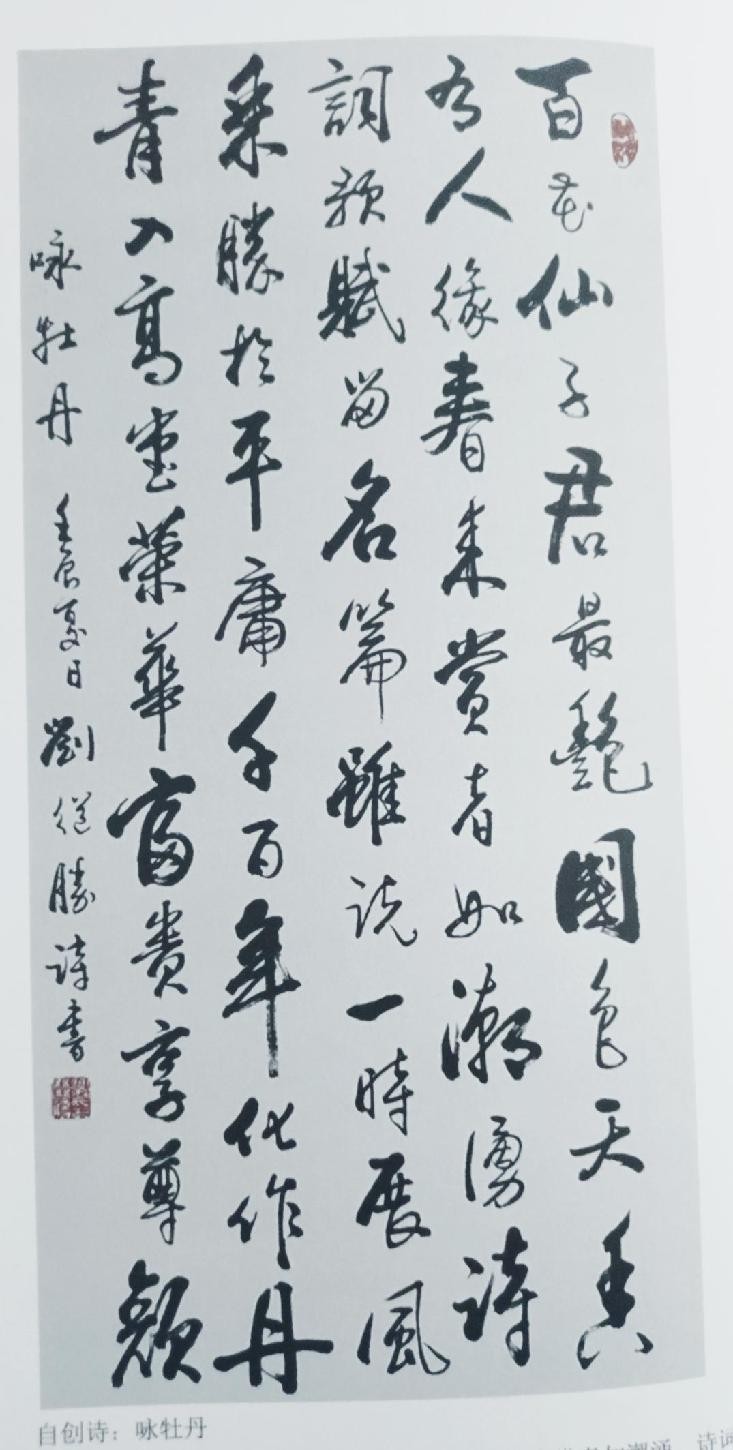 百花仙子君最艷國色天香
為人緣春來賞者如潮湧詩
詞歌賦留名篇雖說一時展風
采勝於平庸千百年化作丹
青入高堂榮華富貴享尊顏
咏牡丹 壬辰夏日劉從勝詩書
自创诗：咏牡丹
诗词